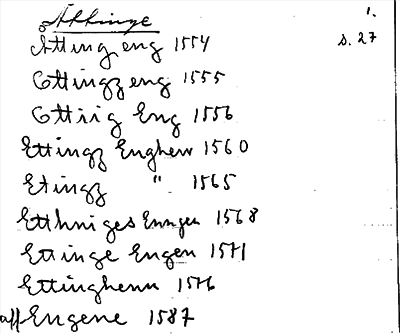 Attinge 1.
Atting eng 1554 s. 27
Ottingz eng 1555
Ottiig Eng 1556
Ettingz Enghen 1560
Etingz " 1565
Etthniges Enngen 1568
Ettinge Engen 1571
Ettinghenn 1576
aff Engene 1587